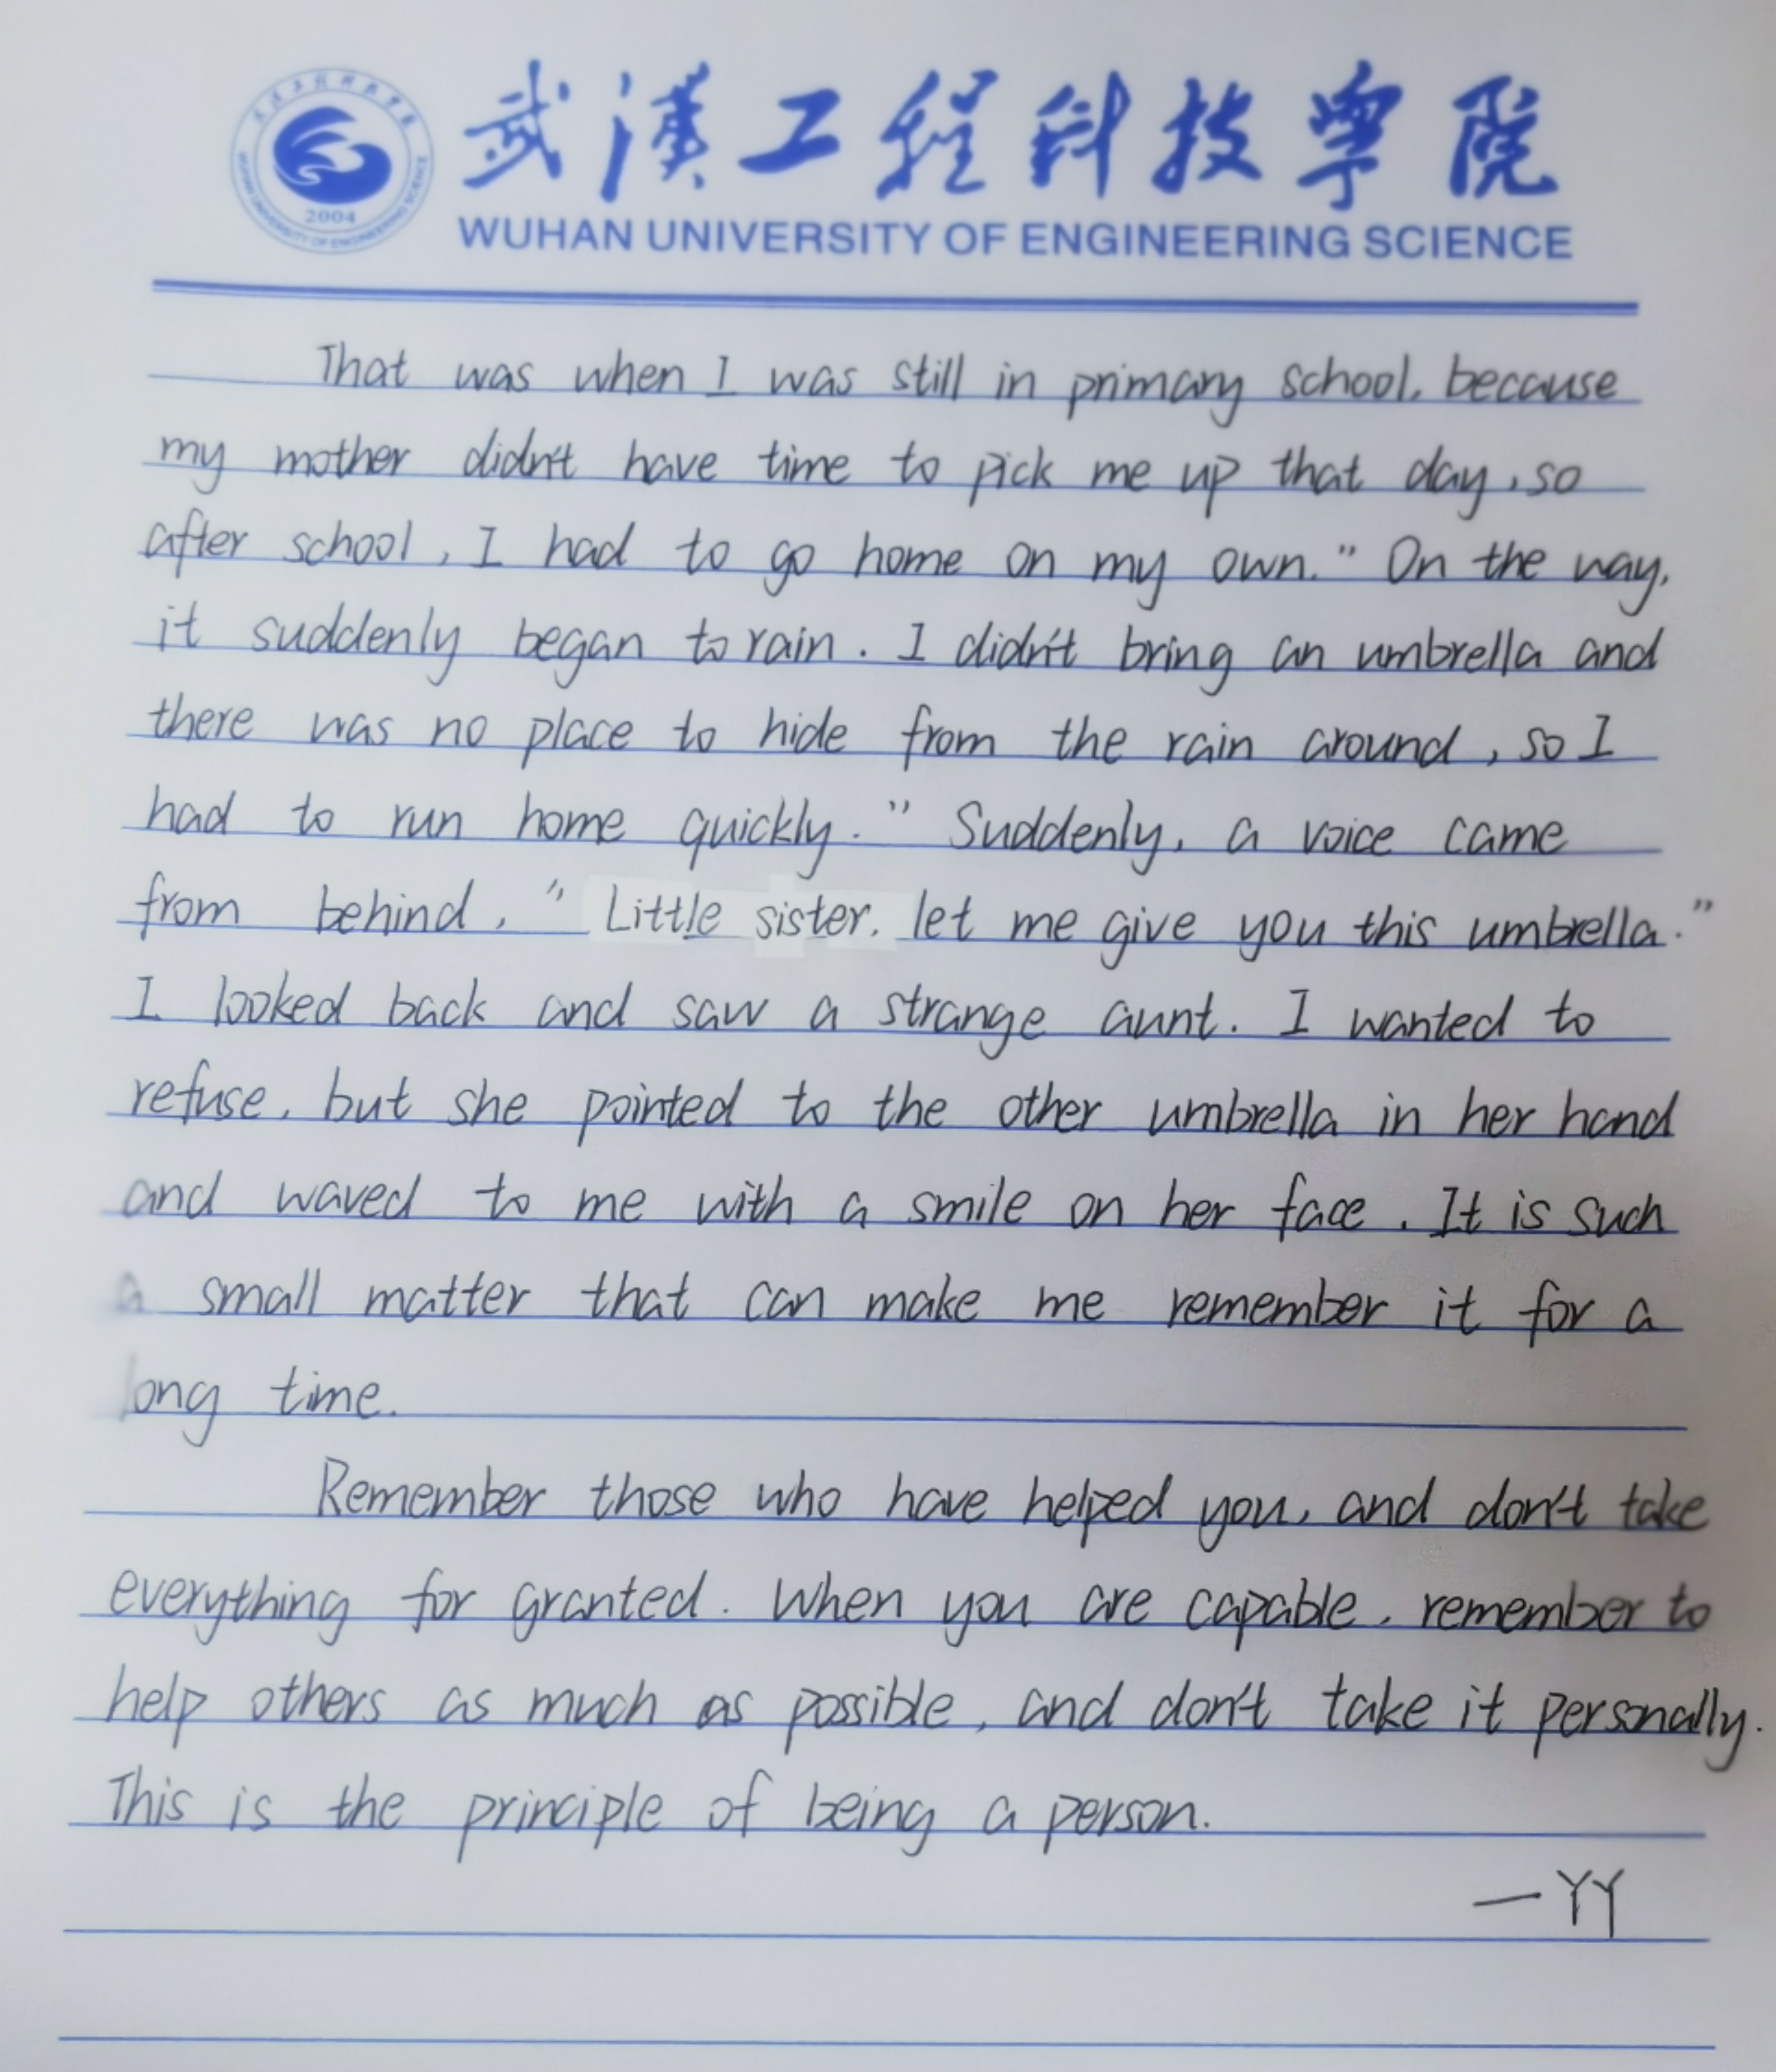 武漢工程科技學院
WUHAN UNIVERSITY OF ENGINEERING SCIENCE
2004
WUHAN UNIVERSITY OF ENGINEERING SCIENCE
That was when I was still in primary school, because
my mother didn't have time to pick me up that day, so
after school, I had to go home on my own." On the way,
it suddenly began to rain. I didn't bring an umbrella and
there was no place to hide from the rain around, so I
had to run home quickly." Suddenly, a voice came
from behind, "Little sister, let me give you this umbrella."
I looked back and saw a strange aunt. I wanted to
refuse, but she pointed to the other umbrella in her hand
and waved to me with a smile on her face. It is such
a small matter that can make me remember it for a
long time.
Remember those who have helped you, and don't take
everything for granted. When you are capable, remember to
help others as much as possible, and don't take it personally.
This is the principle of being a person.
—YY